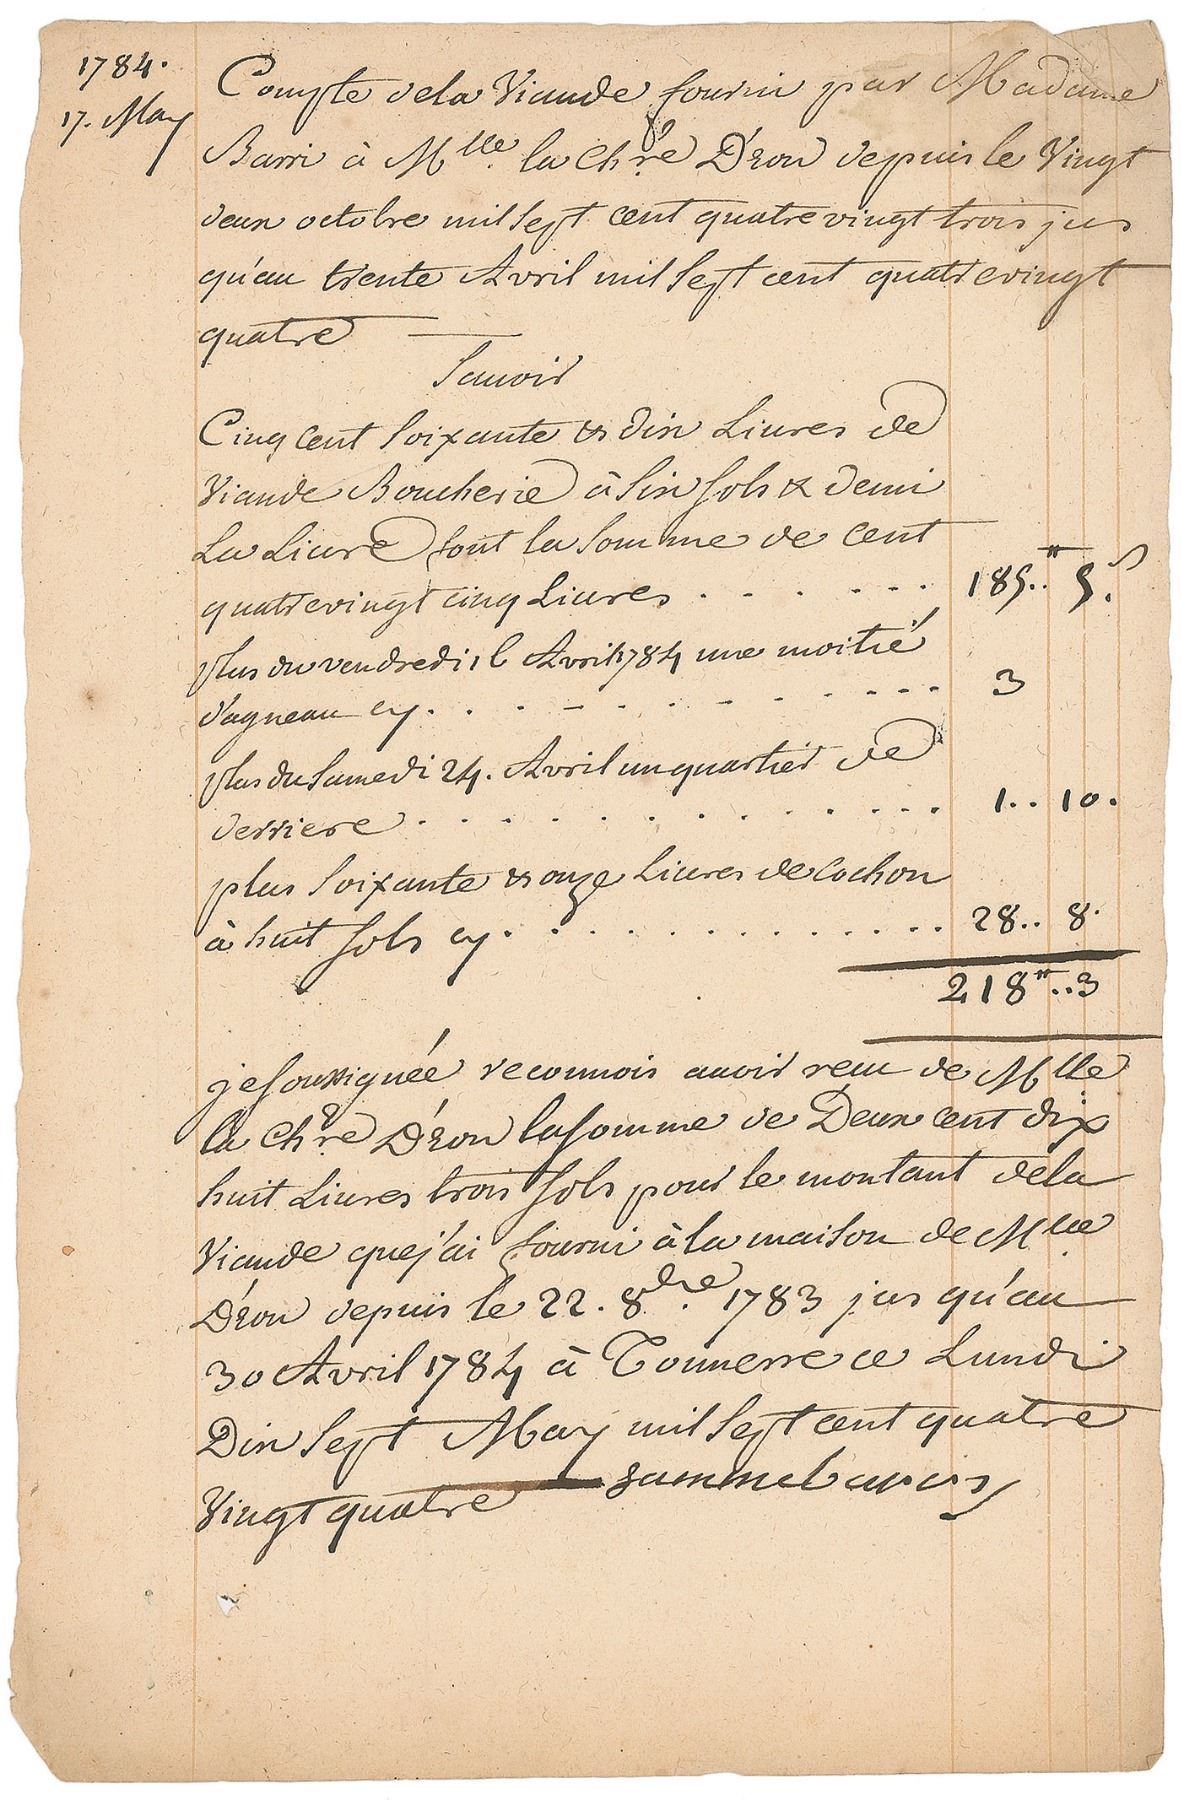 1784.
17. May
Compte dela Viande fourni par Madame
Barri à Mlle la Chre D'Eon depuis le Vingt
deux octobre mil Sept cent quatrevingt trois jus
qu'au trente Avril mil Sept cent quatrevingt
quatre
Sauoir
Cinq Cent Soixante & dix Liures de
Viande Boucherie à Six Sols & demi
La Liure font la Somme de Cent
quatrevingt cinq Liures . . . . . . 185.. 5.s
plus du vendredi 16 Avril 1784 une moitié
d'agneau cy. . . . . . . . . . . 3
plus du Samedi 24. Avril un quartier de
derriere . . . . . . . . . . . . 1.. 10.
plus Soixante & onze Liures de Cochon
à huit Sols cy. . . . . . . . . . . 28.. 8.
218..3
je Soussignée reconnois auoir recu de Mlle
la Chre D'Eon la Somme de Deux cent dix
huit Liures trois Sols pour le montant dela
Viande que j'ai fourni à la maison de Mlle
D'Eon depuis le 22. 8bre 1783 jus qu'au
30 Avril 1784 à Tonnerre ce Lundi
Dix Sept May mil Sept cent quatre
Vingt quatre